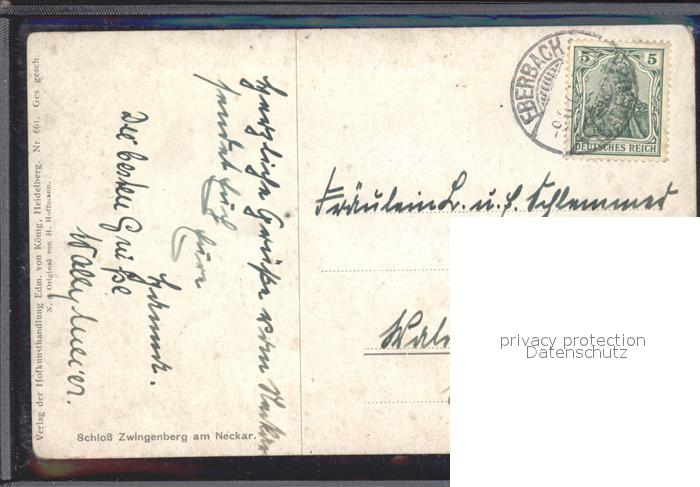 Verlag der Hofkunsthandlung Edm. von König, Heidelberg. Nr. 661. Ges. gesch.
N. Original von H. Hoffmann.
Herzliche Grüße vom Neckar
sendet Euch
Eure
Die besten Grüße
Schloß Zwingenberg am Neckar.
EBERBACH
5 5
DEUTSCHES REICH
Fräulein L. u. F. Schlemmer
privacy protection
Datenschutz